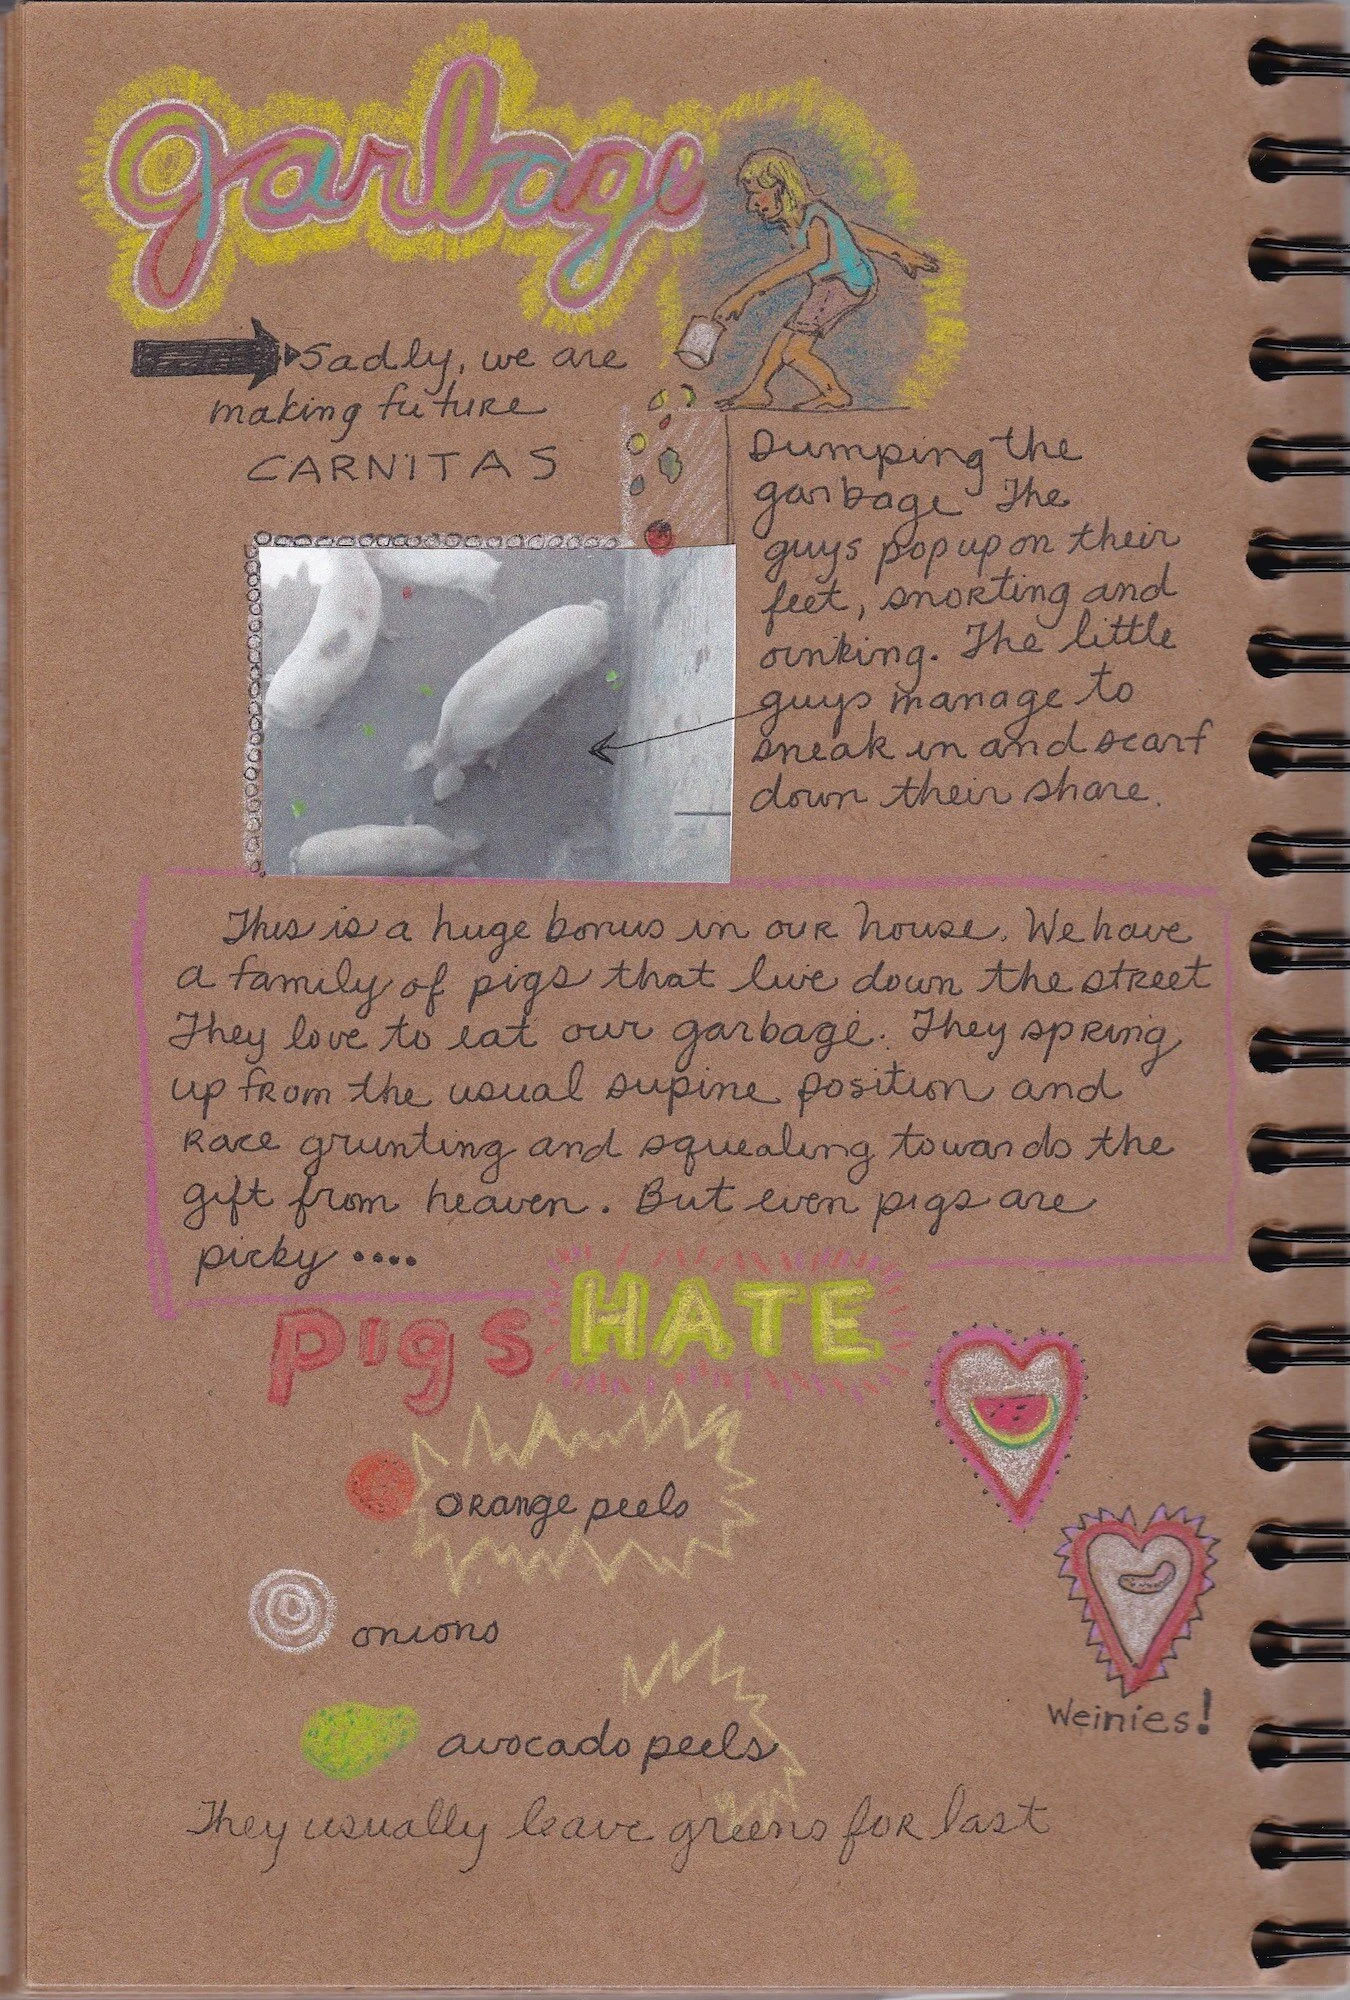 garbage
Sadly, we are
making future
CARNITAS
Dumping the
garbage The
guys pop up on their
feet, snorting and
oinking. The little
guys manage to
sneak in and scarf
down their share.
This is a huge bonus in our house. We have
a family of pigs that live down the street
They love to eat our garbage. They spring
up from the usual supine position and
race grunting and squealing towards the
gift from heaven. But even pigs are
picky ....
pigs HATE
orange peels
onions
avocado peels
Weinies!
They usually leave greens for last